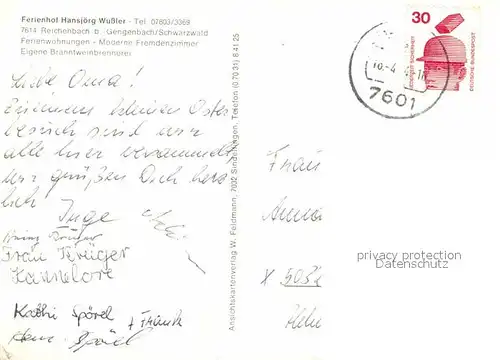 Ferienhof Hansjörg Wußler - Tel. 07803/3369
7614 Reichenbach b. Gengenbach/Schwarzwald
Ferienwohnungen - Moderne Fremdenzimmer
Eigene Branntweinbrennerei
30
DEUTSCHE BUNDESPOST
7601
Liebe Oma!
Zu einem kleinen Oster
besuch sind wir
alle hier versammelt
wir grüßen Dich herz
lich Inge
Krüger
Frau Krüger
Hannelore
Käthi Spörel + Frank
Ansichtskartenverlag W. Feldmann, 7032 Sindelfingen, Telefon (0 70 31) 8 41 25
Frau
privacy protection
Datenschutz